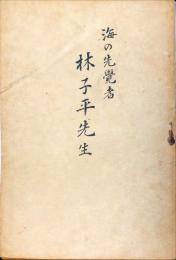 海の先覺者
林子平先生